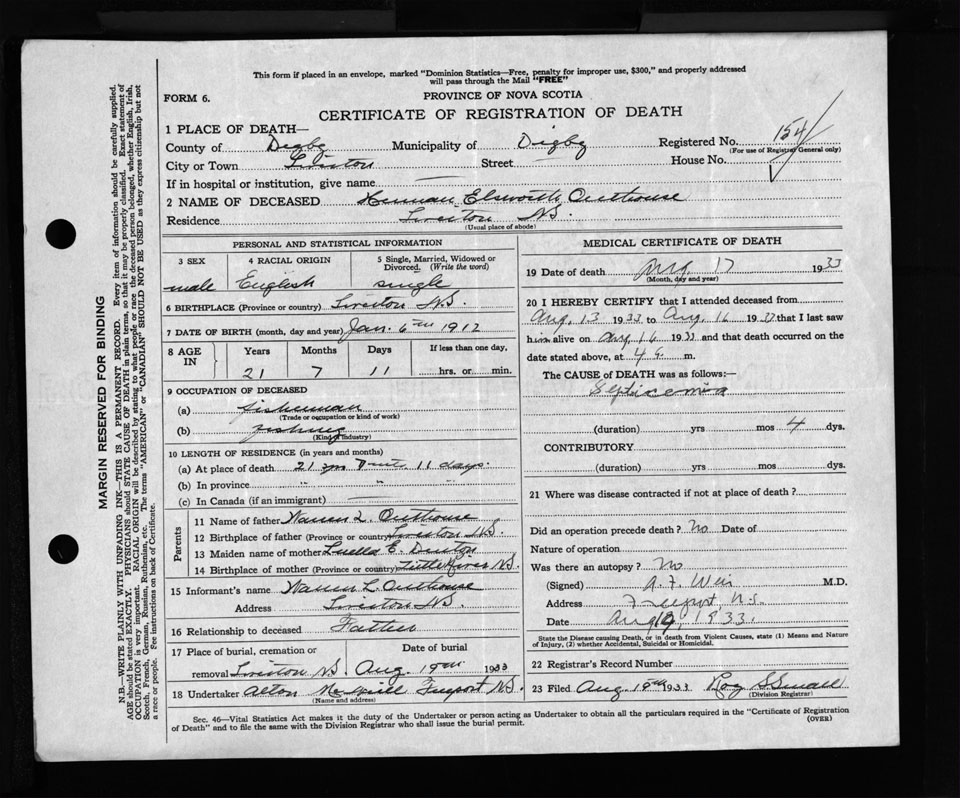 This form if placed in an envelope, marked "Dominion Statistics—Free, penalty for improper use, $300," and properly addressed
will pass through the Mail "FREE"
FORM 6.
PROVINCE OF NOVA SCOTIA
CERTIFICATE OF REGISTRATION OF DEATH
1 PLACE OF DEATH—
County of Digby Municipality of Digby Registered No. 154
(For use of Registrar General only)
City or Town Tiverton Street House No.
If in hospital or institution, give name
2 NAME OF DECEASED Herman Elsworth Outhouse
Residence Tiverton N.S.
(Usual place of abode)
PERSONAL AND STATISTICAL INFORMATION
3 SEX 4 RACIAL ORIGIN 5 Single, Married, Widowed or Divorced. (Write the word)
male English single
6 BIRTHPLACE (Province or country) Tiverton N.S.
7 DATE OF BIRTH (month, day and year) Jan. 6th 1912
8 AGE IN Years Months Days If less than one day,
21 7 11 hrs. or min.
9 OCCUPATION OF DECEASED
(a) fisherman
(Trade or occupation or kind of work)
(b) fishing
(Kind of industry)
10 LENGTH OF RESIDENCE (in years and months)
(a) At place of death 21 yrs 7 mts 11 days.
(b) In province " " "
(c) In Canada (if an immigrant)
Parents
11 Name of father Warren L. Outhouse
12 Birthplace of father (Province or country) Tiverton N.S.
13 Maiden name of mother Luella E. Denton
14 Birthplace of mother (Province or country) Little River N.S.
15 Informant's name Warren L. Outhouse
Address Tiverton N.S.
16 Relationship to deceased Father
17 Place of burial, cremation or removal Date of burial
Tiverton N.S. Aug. 19th 1933
18 Undertaker Alton McNeill Freeport N.S.
(Name and address)
MEDICAL CERTIFICATE OF DEATH
19 Date of death Aug. 17 1933
(Month, day and year)
20 I HEREBY CERTIFY that I attended deceased from
Aug. 13 1933 to Aug. 16 1933 that I last saw
him alive on Aug. 16 1933 and that death occurred on the
date stated above, at 4 a. m.
The CAUSE of DEATH was as follows:—
Septicemia
(duration) yrs mos 4 dys.
CONTRIBUTORY
(duration) yrs mos dys.
21 Where was disease contracted if not at place of death?
Did an operation precede death? No Date of
Nature of operation
Was there an autopsy? No
(Signed) A. F. Weir M.D.
Address Freeport, N.S.
Date Aug 19, 1933.
State the Disease causing Death, or in death from Violent Causes, state (1) Means and Nature
of Injury, (2) whether Accidental, Suicidal or Homicidal.
22 Registrar's Record Number
23 Filed Aug. 18th 1933 Roy S Small
(Division Registrar)
Sec. 46—Vital Statistics Act makes it the duty of the Undertaker or person acting as Undertaker to obtain all the particulars required in the "Certificate of Registration
of Death" and to file the same with the Division Registrar who shall issue the burial permit.
(OVER)
MARGIN RESERVED FOR BINDING
N.B.—WRITE PLAINLY WITH UNFADING INK—THIS IS A PERMANENT RECORD. Every item of information should be carefully supplied.
AGE should be stated EXACTLY. PHYSICIANS should STATE CAUSE OF DEATH in plain terms, so that it may be properly classified. Exact statement of
OCCUPATION is very important. RACIAL ORIGIN will be described by stating to what people or race the deceased person belonged, whether English, Irish,
Scotch, French, German, Russian, Ruthenian, etc. The terms "AMERICAN" or "CANADIAN" SHOULD NOT BE USED as they express citizenship but not
a race or people. See instructions on back of Certificate.